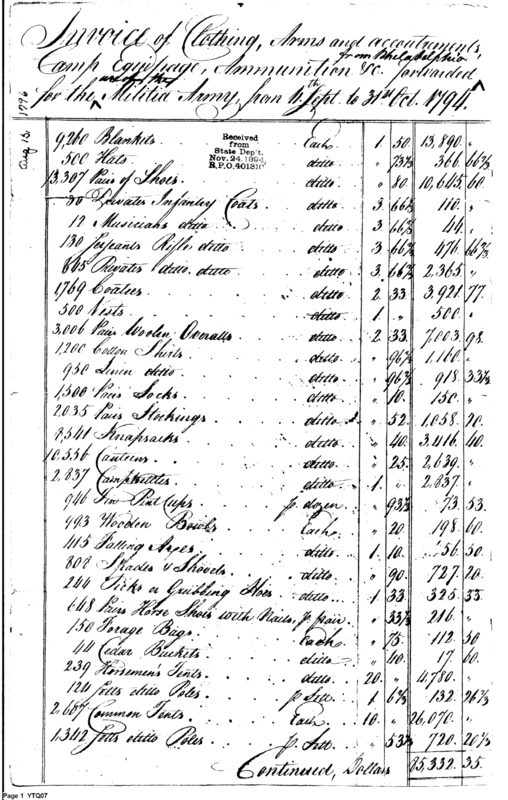 Invoice of Clothing, Arms and accoutrements,
from Philadelphia
Camp Equipage, Ammunition &c. forwarded
use of the
for the Militia Army, from 4th Sept. to 31st Oct. 1794.
Aug 13 1796
Received
from
State Dep't.
Nov. 24. 1894
R.P.O. 401310
9,260 Blankets . . Each 1 50 13,890 "
500 Hats . . ditto " 73⅓ 366 66⅔
13,307 Pairs of Shoes . . ditto " 80 10,645 60
30 Privates Infantry Coats . ditto 3 66⅔ 110 "
12 Musicians ditto . . ditto 3 66⅔ 44 "
130 Serjeants Rifle ditto . ditto 3 66⅔ 476 66⅔
645 Privates ditto ditto . ditto 3 66⅔ 2,365 "
1769 Coatees . . ditto 2 33 3,921 77
500 Vests . . ditto 1 " 500 "
3,006 Pairs Woolen Overalls . ditto 2 33 7,003 98
1,200 Cotton Shirts . . ditto " 96⅔ 1,160 "
950 Linen ditto . . ditto " 96⅔ 918 33⅓
1,500 Pairs Socks . . ditto " 10 150 "
2,035 Pairs Stockings . . ditto " 52 1,058 20
8,541 Knapsacks . . ditto " 40 3,416 40
10,556 Canteens . . ditto " 25 2,639 "
2,837 Campkettles . . ditto 1 " 2,837 "
946 Tin Pint Cups . . p. dozen " 93⅓ 73 53
993 Wooden Bowls . . Each " 20 198 60
415 Falling Axes . . ditto 1 10 456 50
808 Spades & Shovels . . ditto " 90 727 20
244 Picks or Grubbing Hoes . ditto 1 33 325 33
648 Pairs Horse Shoes with Nails, p. pair " 33⅓ 216 "
150 Forage Bags . . Each " 75 112 50
44 Cedar Buckets . . ditto " 40 17 60
239 Horsemen's Tents . . ditto 20 " 4,780 "
124 Setts ditto Poles . . p. Sett 1 6⅔ 132 26⅔
2,607 Common Tents . . Each 10 " 26,070 "
1,342 Setts ditto Poles . p. Sett " 53⅔ 720 20⅔
Continued, Dollars 85,332 35
Page 1 YTQ07